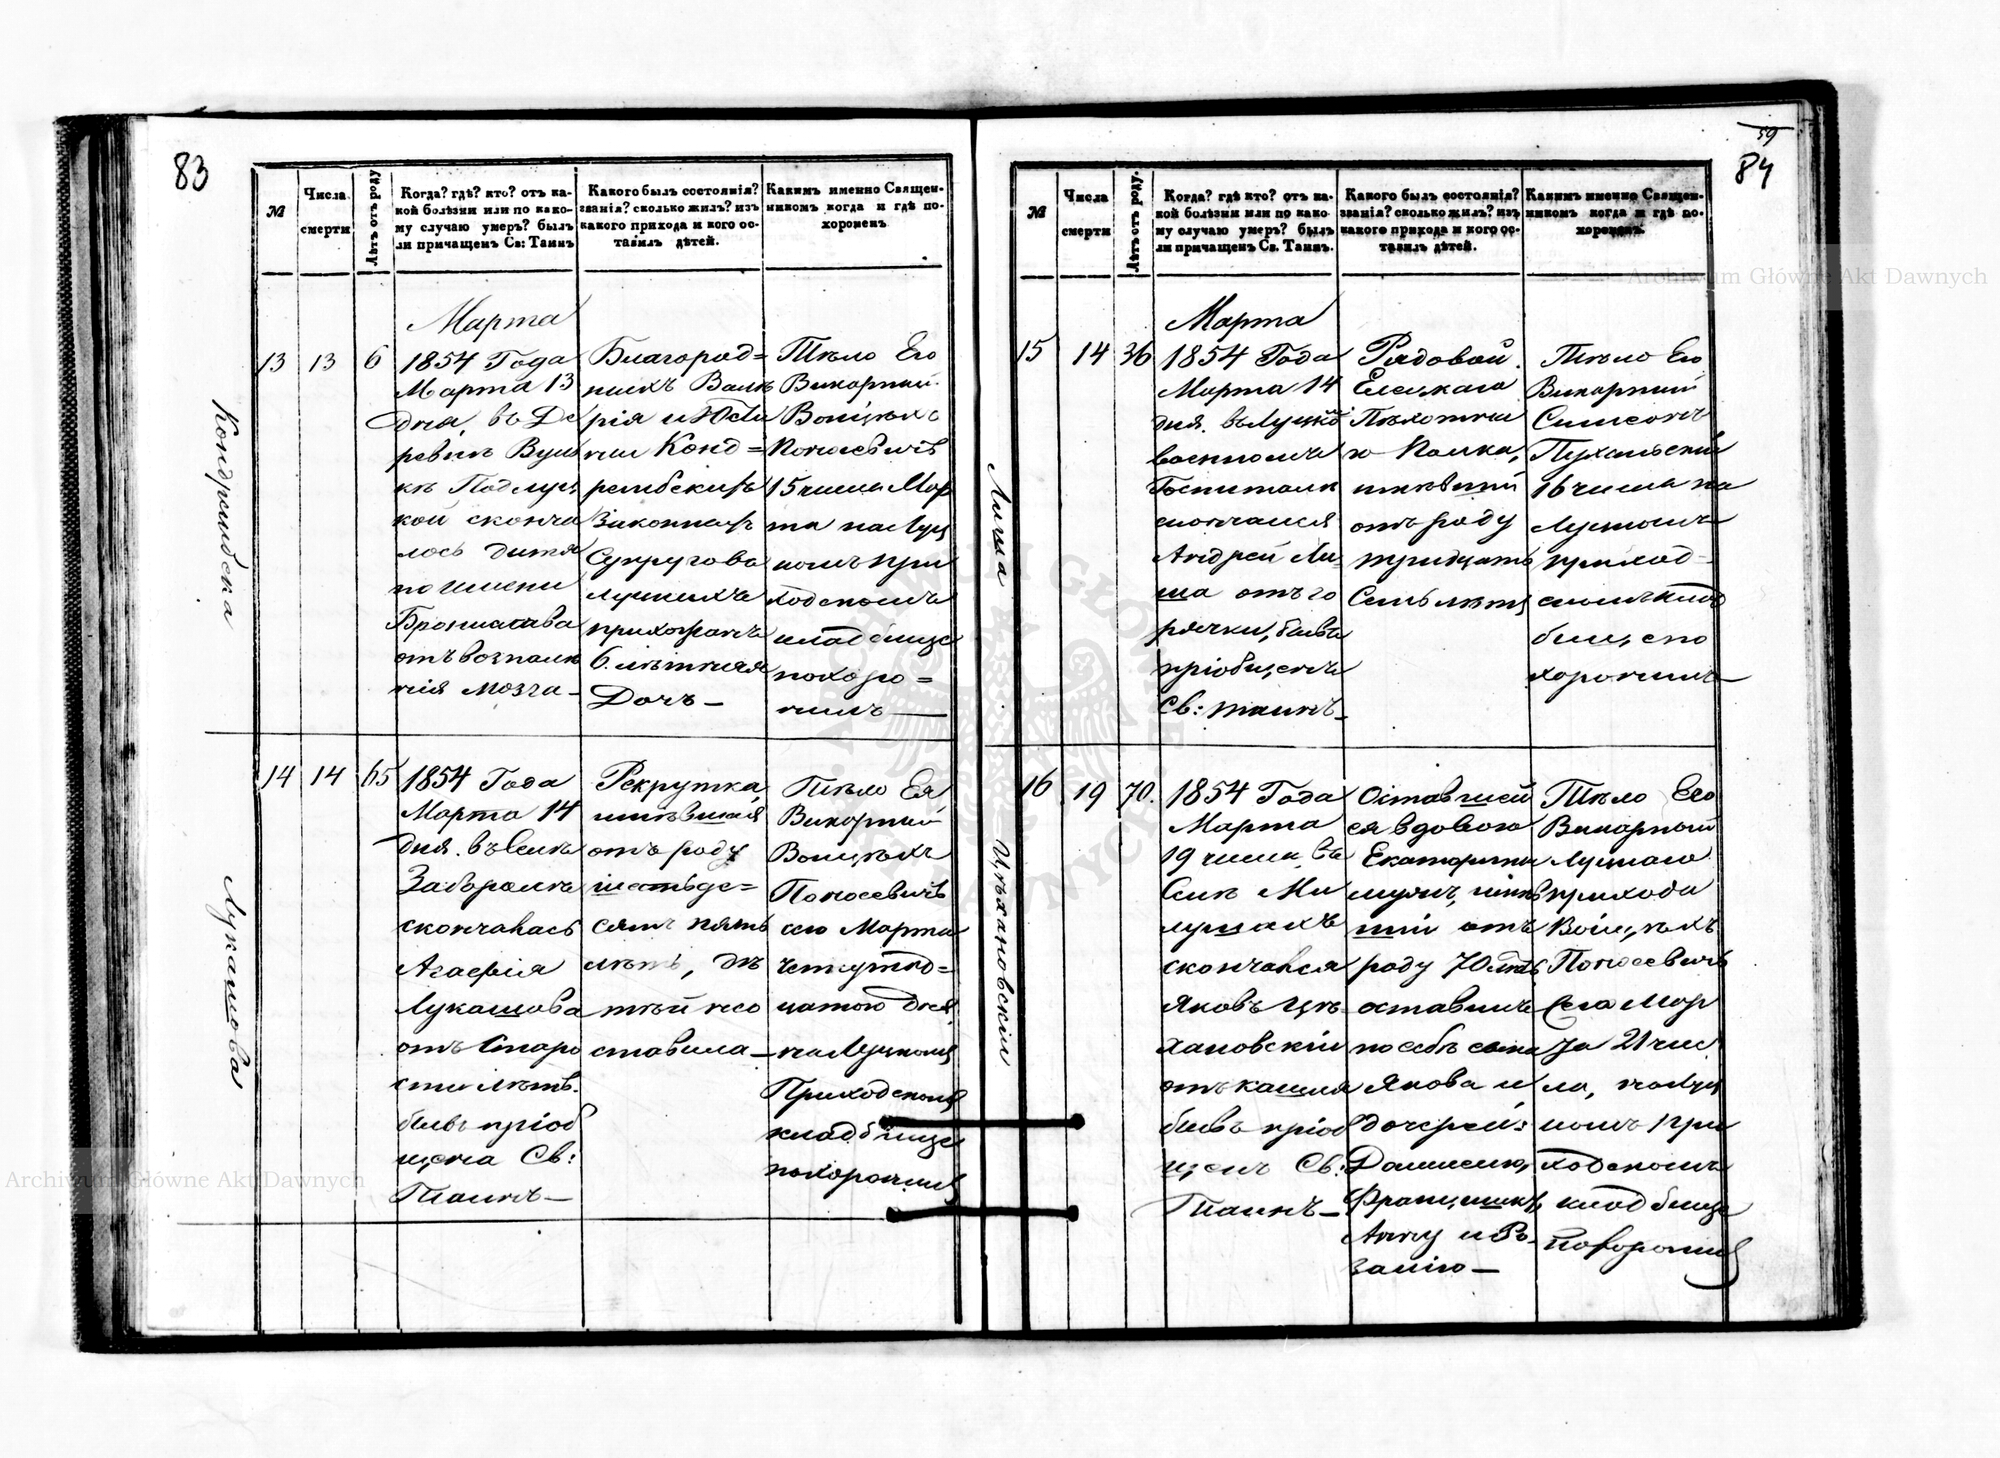 83
№
Числа смерти
Лѣтъ отъ роду
Когда? гдѣ? кто? отъ ка-
кой болѣзни или по како-
му случаю умеръ? былъ
ли причащенъ Св: Таинъ
Какого былъ состоянія?
званія? сколько жилъ? изъ
какого прихода и кого ос-
тавилъ дѣтей.
Какимъ именно Священ-
никомъ когда и гдѣ по-
хороненъ
Кондрсибска
13
13
6
Марта
1854 Года
Марта 13
дня, въ Де
ревнѣ Вуль
кѣ Подлуц
кой сконча
лось дитя
по имени
Бронислава
отъ воспале
нія мозга –
Благород=
ныхъ Вале
рія и Юсти
ны Конд=
ратскихъ
Законныхъ
Супруговъ
луцкихъ
прихожанъ
6 лѣтняя
Дочь –
Тѣло Его
Викарный
Войцѣхъ
Поносевичъ
15 числа Мар
та на Луц
комъ при
ходскомъ
кладбище
похоро=
нилъ –
Лукашова
14
14
65
1854 Года
Марта 14
дня въ селѣ
Забороль
скончалась
Агафія
Лукашова
отъ Старо
сти лѣтъ.
бывъ пріоб
щена Св:
Таинъ –
Рекрутка
имѣвшая
отъ роду
шестьде=
сятъ пять
лѣтъ, дѣ
тей не о
ставила –
Тѣло Ея
Викарный
Войцѣхъ
Поносевичъ
сего Марта
четырнад=
цатого дня
на Луцкомъ
Приходскомъ
кладбище
похоронилъ
59
84
№
Числа смерти
Лѣтъ отъ роду.
Когда? гдѣ кто? отъ ка-
кой болѣзни или по како-
му случаю умеръ? былъ
ли причащенъ Св. Таинъ.
Какого былъ состоянія?
званія? сколько жилъ? изъ
какого прихода и кого ос-
тавилъ дѣтей.
Какимъ именно Священ-
никомъ когда и гдѣ по-
хороненъ.
Лиша
15
14
36
Марта
1854 Года
Марта 14
дня. въ Луцкѣ
военномъ
Госпиталѣ
скончался
Андрей Ли
ша отъ го
рячки, бывъ
пріобщенъ
Св: таинъ –
Рядовой
Елецкаго
Пѣхотна
го Полка,
имѣвшій
отъ роду
тридцать
Семь лѣтъ
Тѣло Его
Викарный
Симеонъ
Пухальскій
16 числа на
Луцкомъ
приход=
скомъ клад
бищѣ по
хоронилъ –
Цѣхановскій
16
19
70.
1854 Года
Марта
19 числа въ
Селѣ Ми
лушахъ
скончался
Яковъ Цѣ
хановскій
отъ кашля
бывъ пріоб
щенъ Св:
Таинъ –
Оставшей
ся вдовою
Екатерины
мужъ, имѣв
шій отъ
роду 70 лѣтъ
оставилъ
по себѣ сына
Якова и
дочерей:
Францишку
Анну и Ро
залію –
Тѣло Его
Викарный
Луцкаго
прихода
Войцѣхъ
Поносевичъ
Сего Мар
та 21 чис
ла, на Луц
комъ при
ходскомъ
кладбище
похоронилъ
Archiwum Główne Akt Dawnych
Archiwum Główne Akt Dawnych